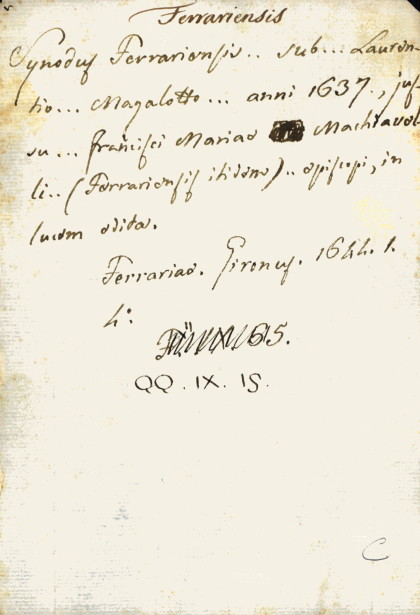 Ferrariensis
Synodus Ferrariensis.. sub... Lauren-
tio... Magalotto... anni 1637., jus-
su... francisci Mariae Machiavel-
li.. (Ferrariensis itidem).. episcopi, in
lucem edita.
Ferrariae. Gironus. 1644. 1.
4°.
QQ. IX. 15.
C